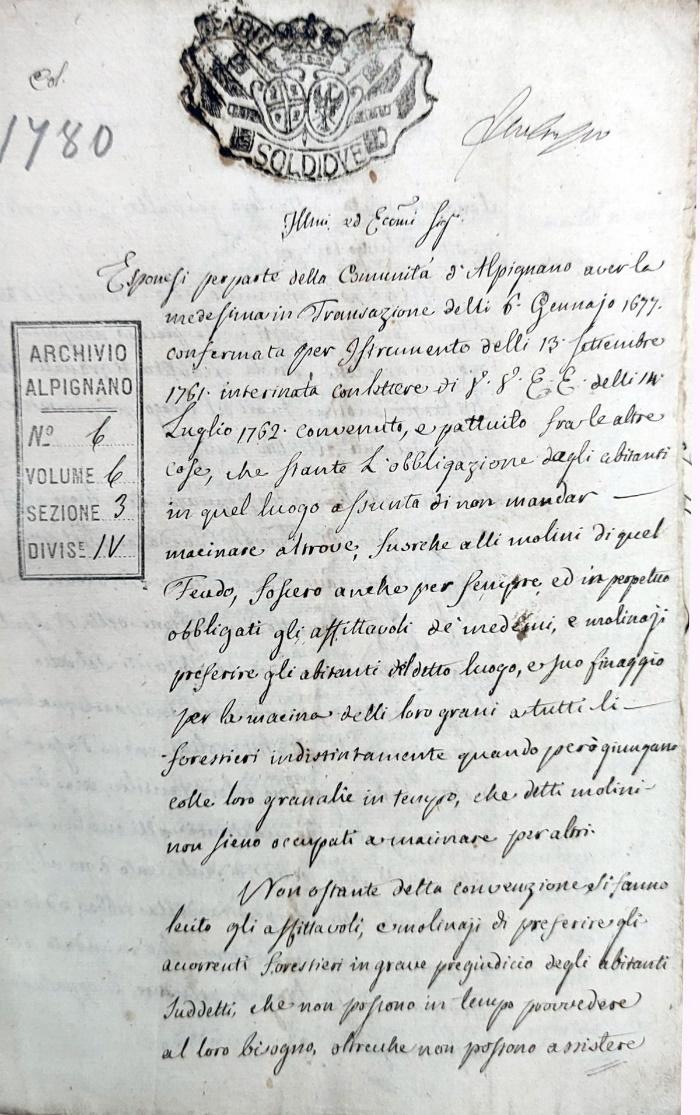 Col.
1780
SOLDI DVE
Illmi. ed Eccmi Sigri.
Esponesi per parte della Comunità d'Alpignano aver la
medesima in Transazione delli 6. Gennajo 1677.
confermata per Istrumento delli 13. Settembre
1761. interinata con lettere di V. V. E. E. delli 14.
Luglio 1762. convenuto, e pattuito fra le altre
cose, che stante l'obbligazione degli abitanti
in quel luogo assunta di non mandar
macinare altrove, fuorche alli molini di quel
Feudo, fossero anche per sempre, ed in perpetuo
obbligati gli affittavoli de' medemi, e molinaji
preferire gli abitanti del detto luogo, e suo finaggio
per la macina delli loro grani a tutti li
forestieri indistintamente quando però giungano
colle loro granalie in tempo, che detti molini
non sieno occupati a macinare per altri.
Non ostante detta convenzione si fanno
lecito gli affittavoli, e molinaji di preferire gli
accorrenti forestieri in grave pregiudicio degli abitanti
suddetti, che non possono in tempo provvedere
al loro bisogno, oltrecche non possono assistere
ARCHIVIO
ALPIGNANO
No 6
VOLUME 6
SEZIONE 3
DIVISE IV